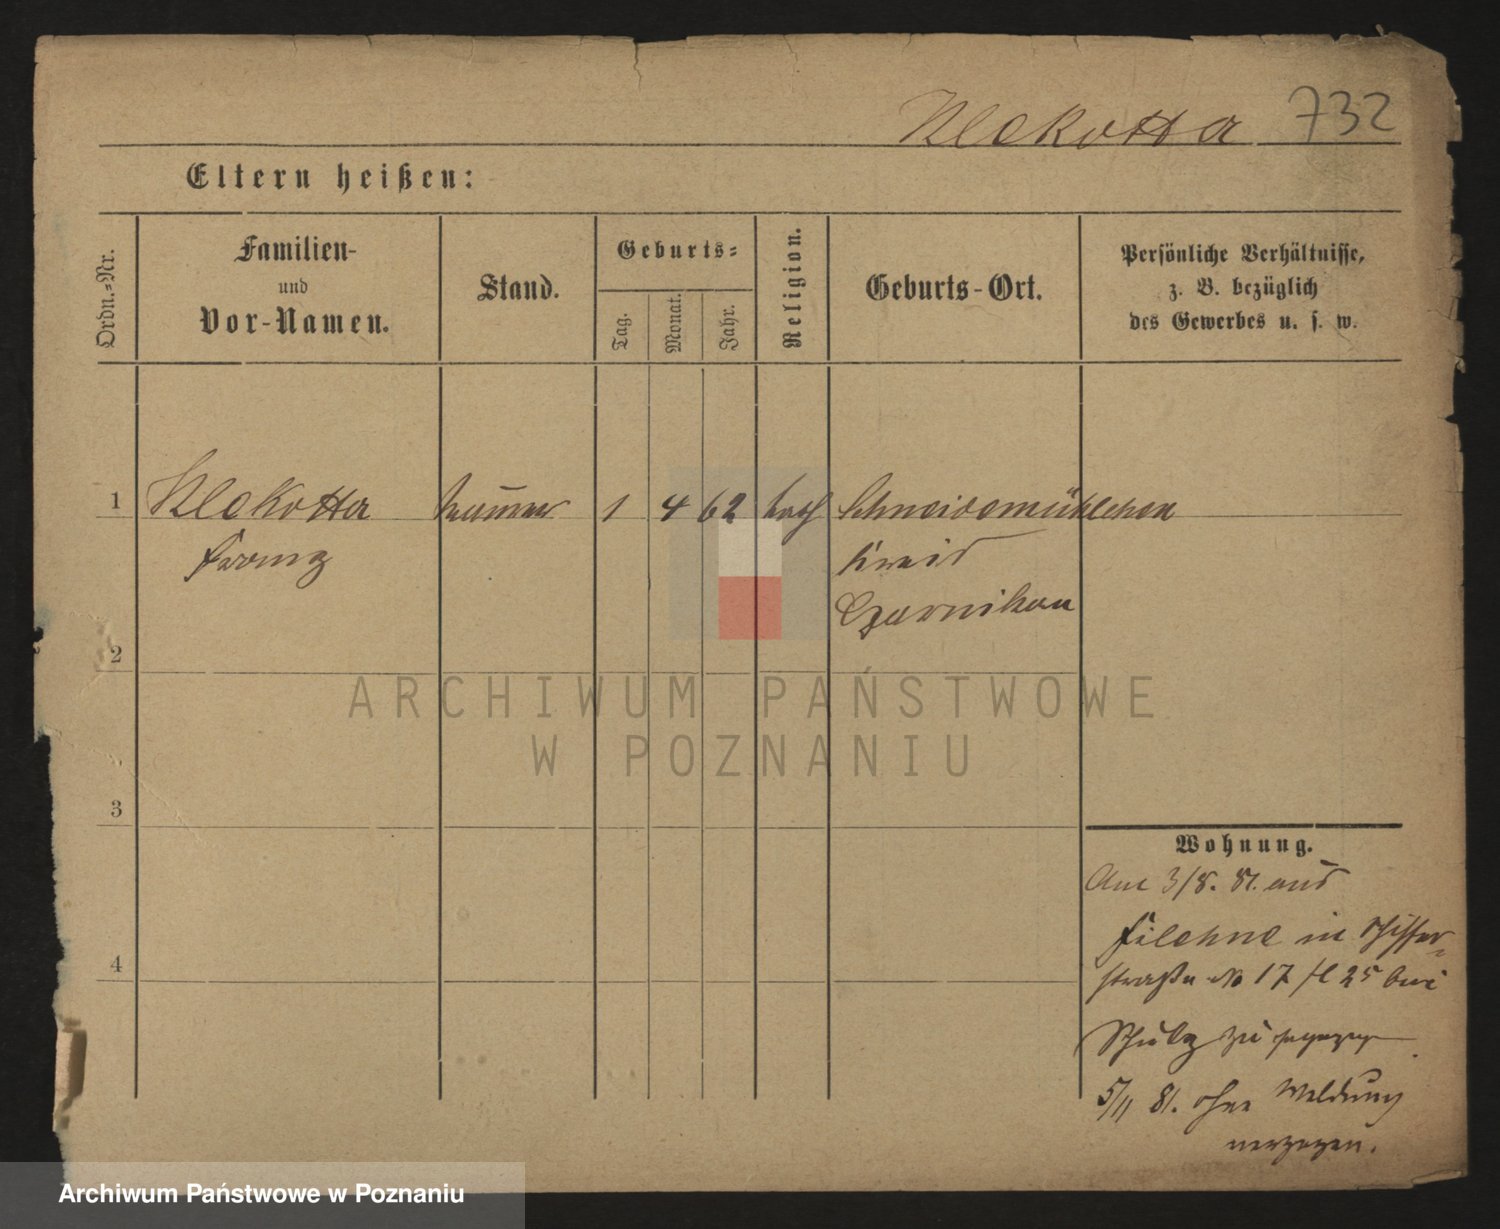 Klekotta 732
Eltern heißen:
Ordn.-Nr.
Familien-
und
Vor-Namen.
Stand.
Geburts-
Tag.
Monat.
Jahr.
Religion.
Geburts-Ort.
Persönliche Verhältnisse,
z. B. bezüglich
des Gewerbes u. s. w.
1 Klekotta 1 4 62 kath Schneidemühlchen
Franz Kreis
Czarnikau
2
3
4
ARCHIWUM PAŃSTWOWE
W POZNANIU
Wohnung.
Am 3/8. 81. aus
Filehne in Schiffer-
straße No 17 / 25 bei
Schulz zu gezogen
5/11 81. ohne Meldung
verzogen.
Archiwum Państwowe w Poznaniu